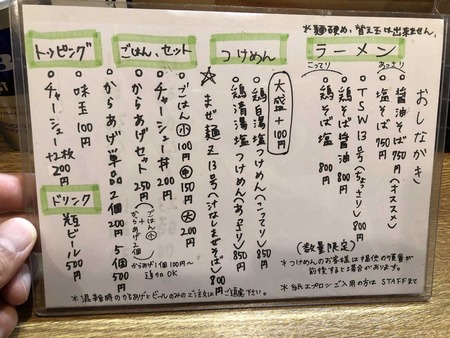 おしながき
※麺硬め、替え玉は出来ません。
ラーメン
あっさり
醤油そば 750円(オススメ)
塩そば 750円
TSW13号(ちょっさり) 800円
こってり
鶏そば 醤油 800円
鶏そば 塩 800円
(数量限定)
つけめん
大盛+100円
鶏白湯塩つけめん(こってり) 850円
鶏清湯塩つけめん(あっさり) 850円
☆まぜ麺Z13号(汁なしまぜそば) 800円
※つけめんのお客様は提供の順番が
前後する場合があります。
※紙エプロンご入用の方は STAFFまで
ごはん、セット
ごはん 小100円 中150円 大200円
チャーシュー丼 200円
からあげセット 250円(ごはん小+からあげ2個)
からあげ単品 2個200円 5個500円
からあげ1個100円〜
追加OK
トッピング
味玉 100円
チャーシュー+2枚 200円
ドリンク
瓶ビール 500円
※混雑時のからあげとビールのみのご注文はご遠慮下さい。